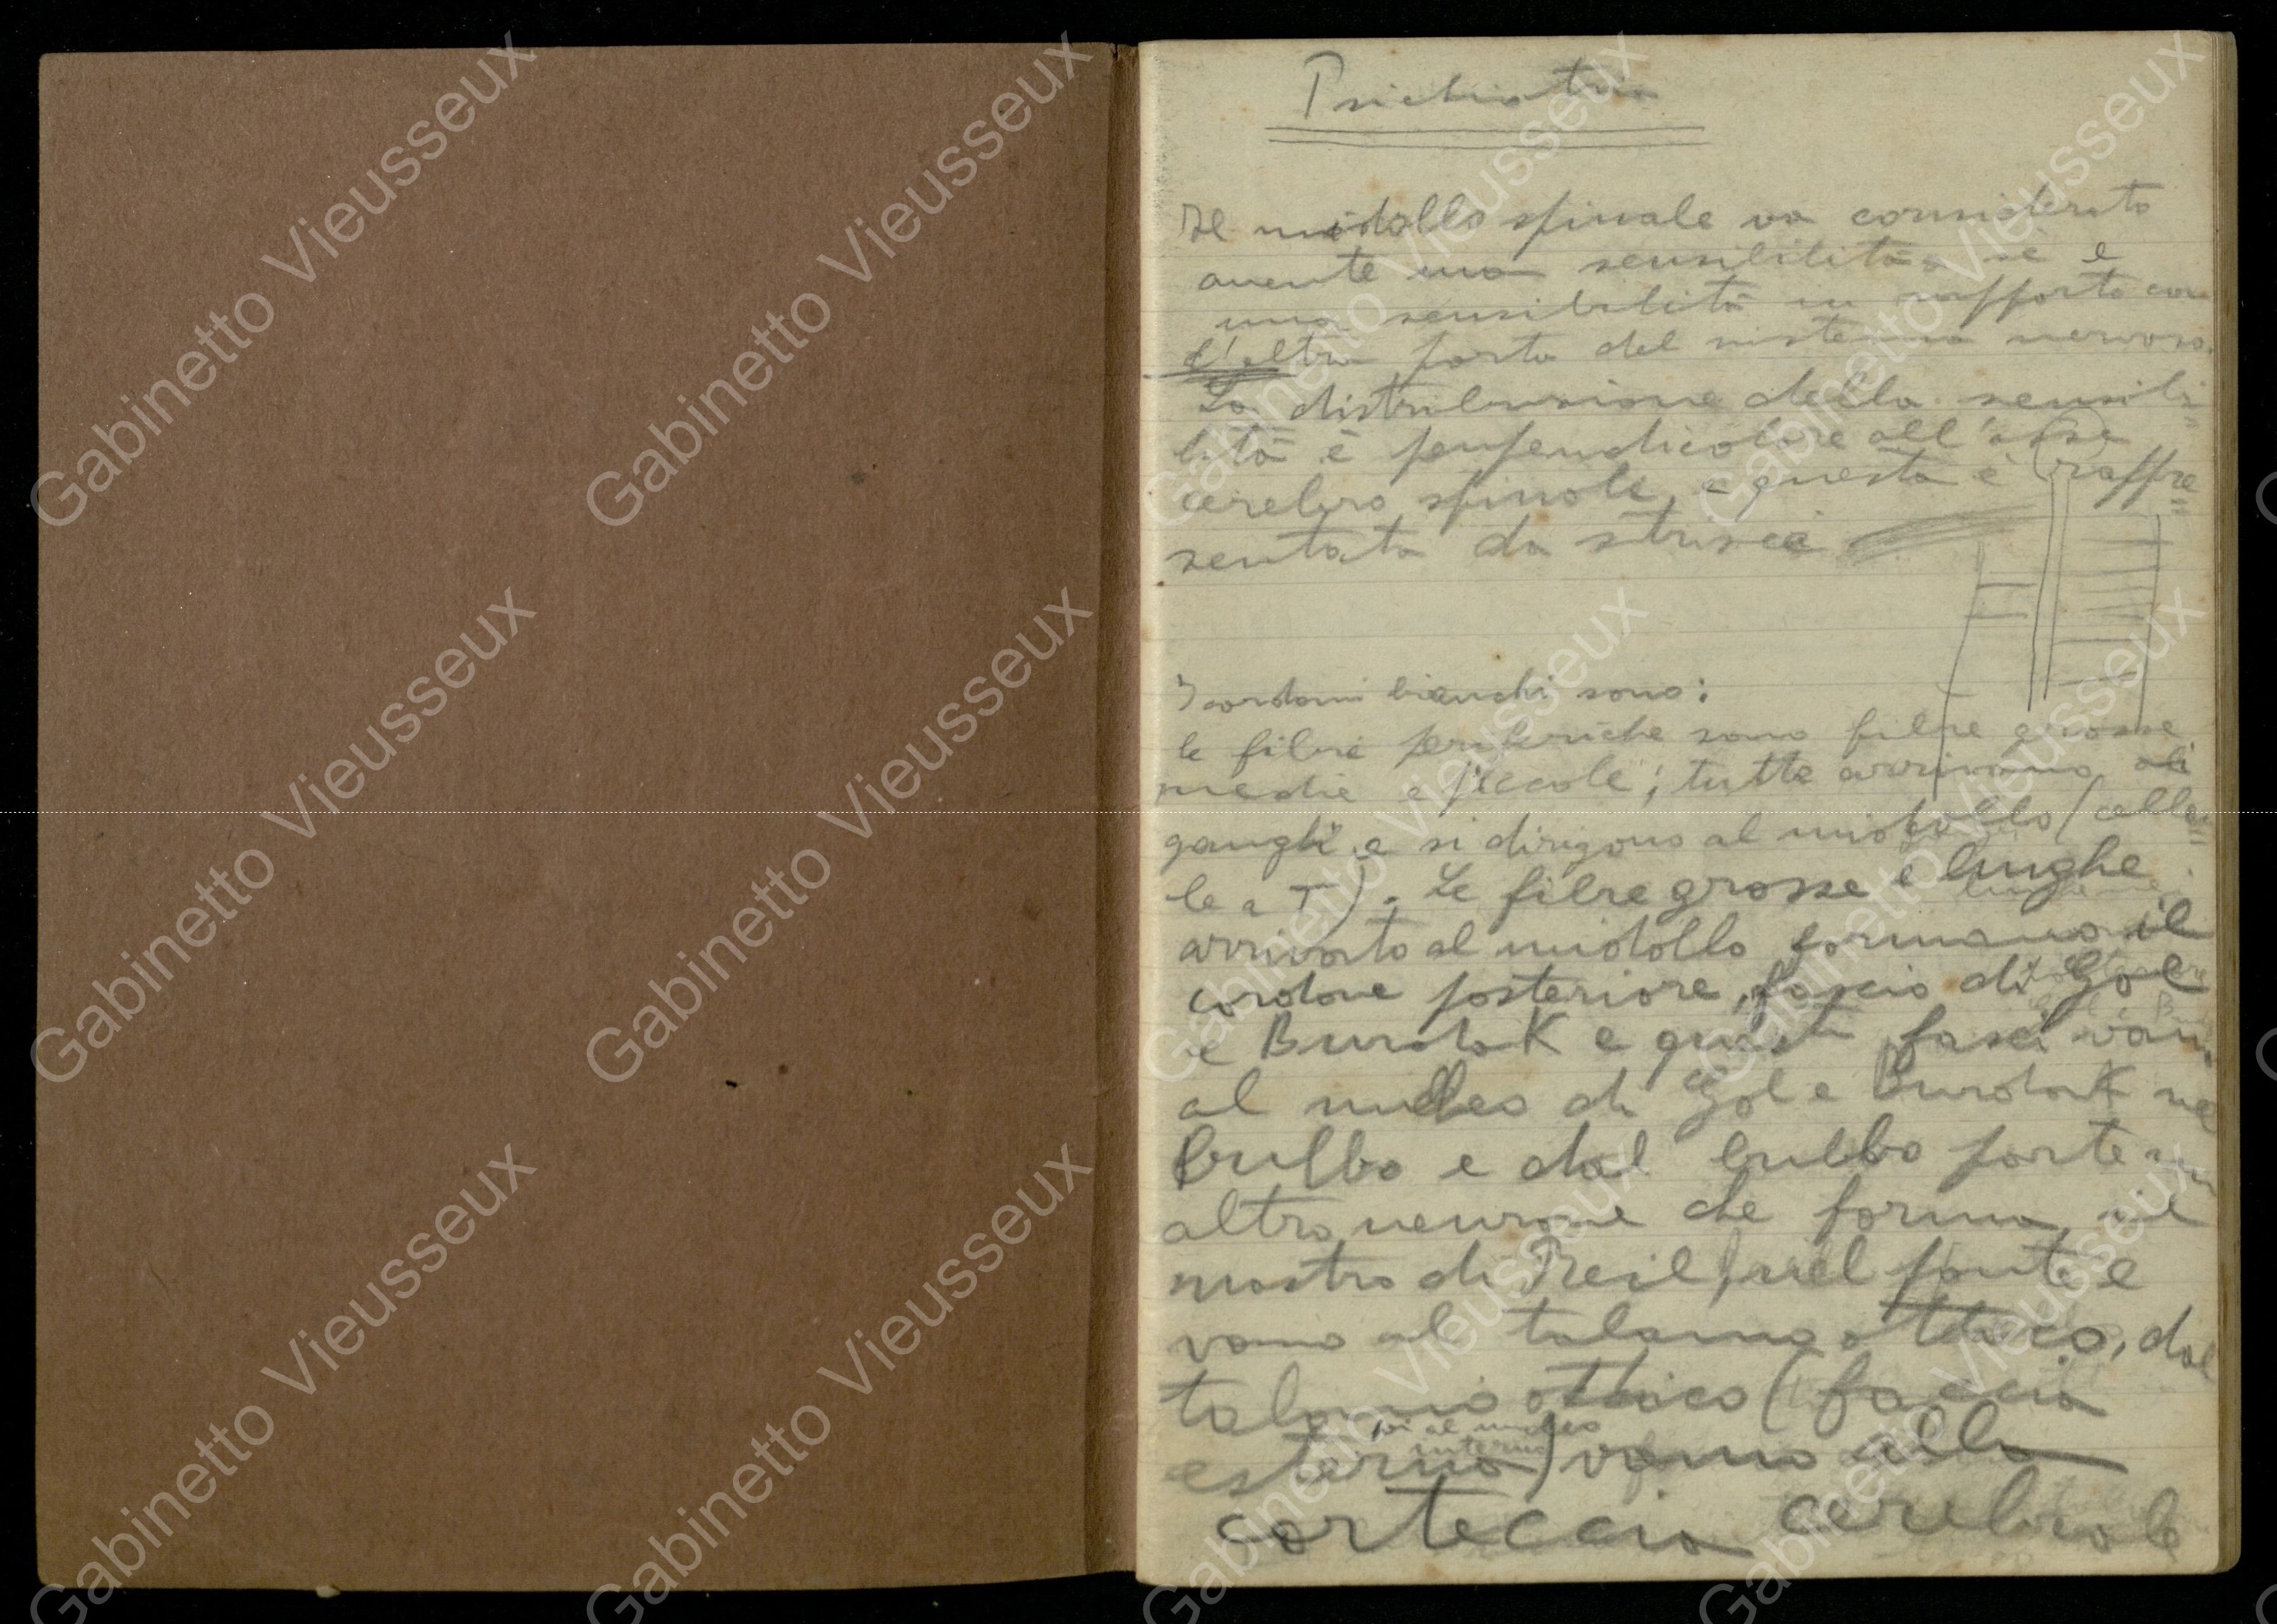 Psichiatria
Il midollo spinale va considerato
avente una sensibilità a sè e
una sensibilità in rapporto con
l'altra parte del sistema nervoso.
La distribuzione della sensibi
lità è perpendicolare all'asse
cerebro spinale, e questa è rappre=
sentata da strisce
I cordoni bianchi sono:
le fibre periferiche sono fibre grosse
medie e piccole; tutte arrivano ai
gangli e si dirigono al midollo (cellu=
le a T). Le fibre grosse e lunghe
arrivato al midollo formano il
cordone posteriore, fascio di Gol
e Burdak e questi fasci vann
al nucleo di Gol e Burdak nel
bulbo e dal bulbo parte un
altro neurone che forma il
nastro di Reil, nel ponte e
vanno al talamo ottico, dal
talamo ottico (faccia
poi al nucleo
interno
esterna) vanno alla
corteccia cerebrale
Gabinetto Vieusseux